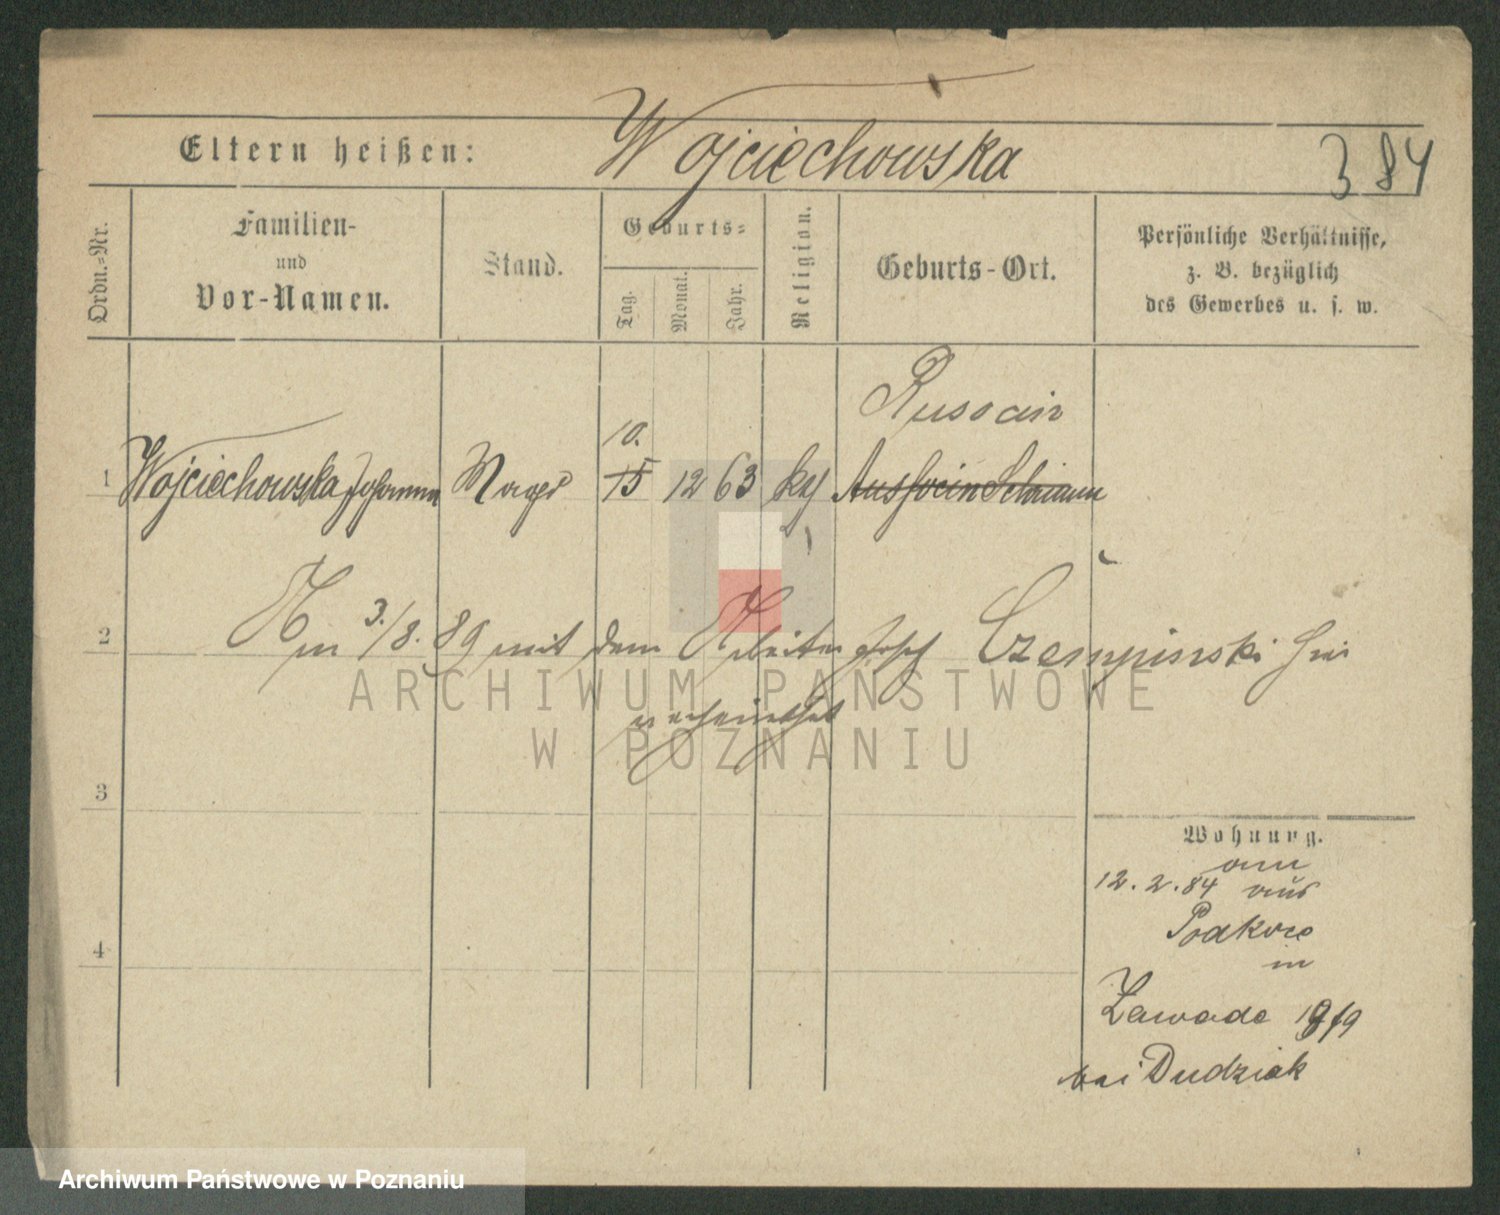 Eltern heißen: Wojciechowska 384
Ordn.=Nr.
Familien-
und
Vor-Namen.
Stand.
Geburts=
Tag. Monat. Jahr.
Religion.
Geburts-Ort.
Persönliche Verhältnisse,
z. B. bezüglich
des Gewerbes u. s. w.
Rusocin
10.
1 Wojciechowska Johanna Magd 15 12 63 kt Russocin Schrimm
2 Am 3./8. 89 mit dem Arbeiter Josef Czempinski hier
verheirathet
3
Wohnung.
am
12. 2. 84 aus
in
4
Zawade 19/9
bei Dudziak
ARCHIWUM PAŃSTWOWE
W POZNANIU
Archiwum Państwowe w Poznaniu